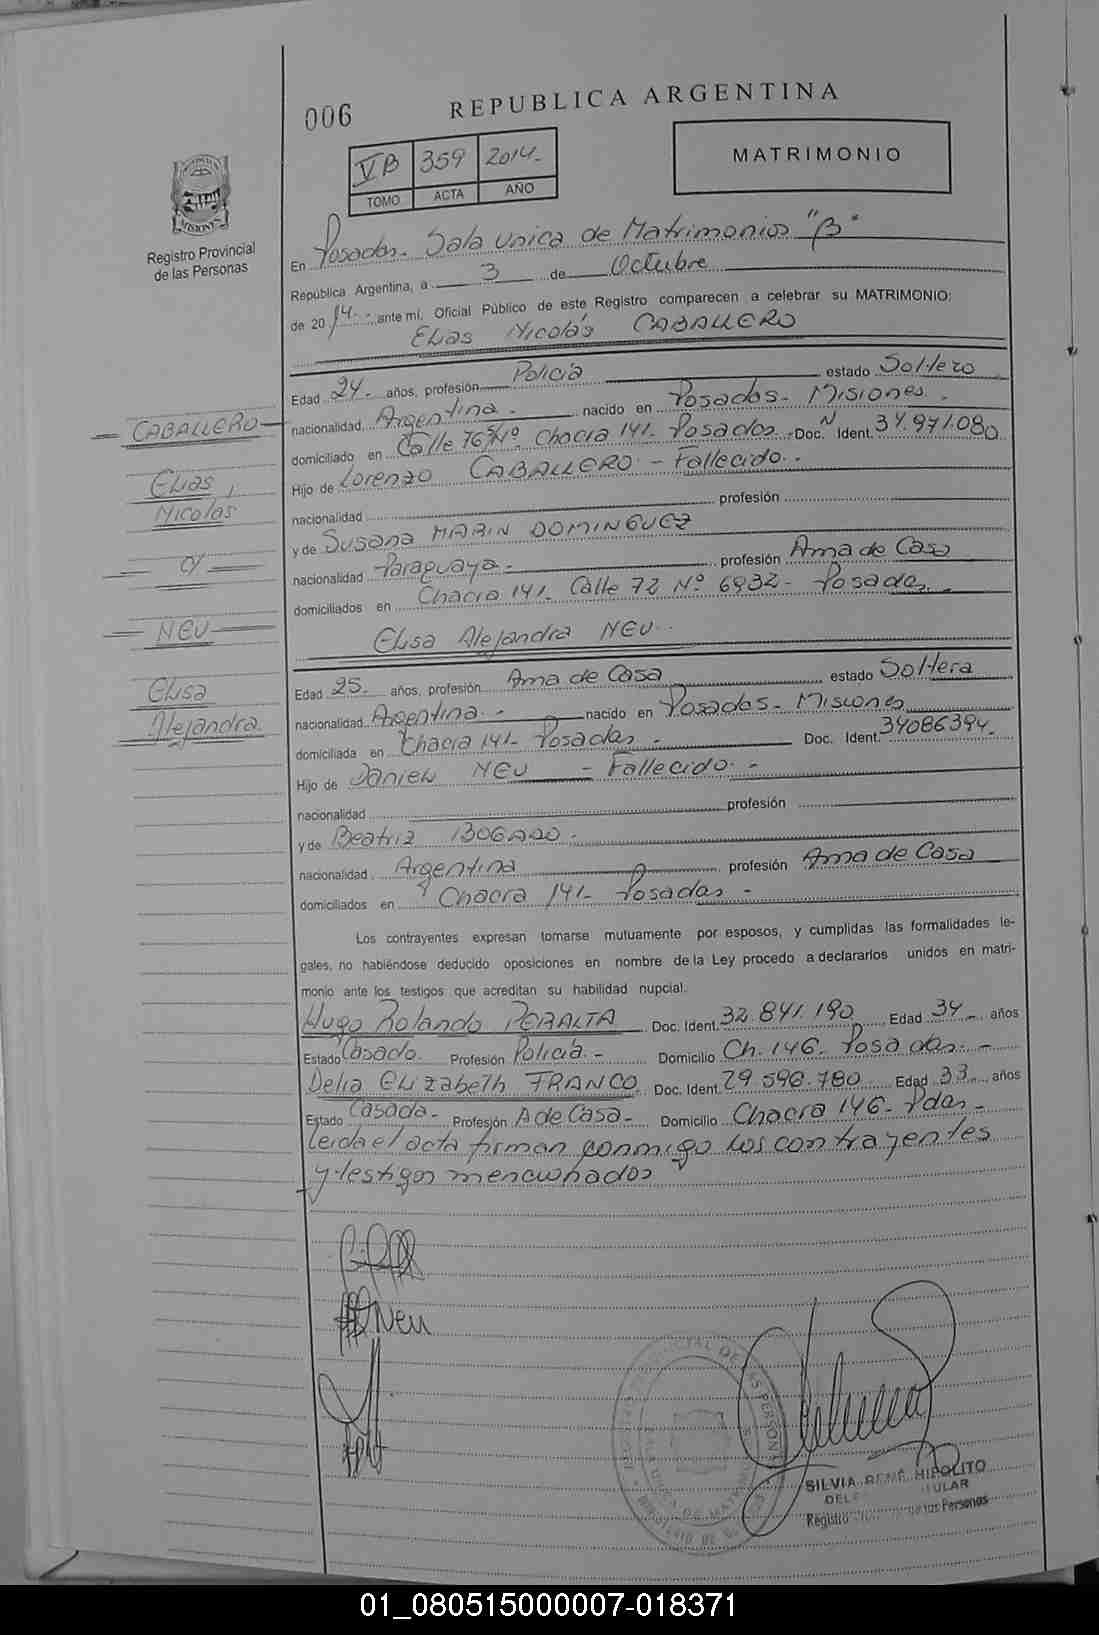 006
REPUBLICA ARGENTINA
VB 359 2014.-
TOMO ACTA AÑO
MATRIMONIO
MISIONES
Registro Provincial
de las Personas
En Posadas. Sala Unica de Matrimonios "B"
República Argentina, a 3 de Octubre
de 2014.- ante mí, Oficial Público de este Registro comparecen a celebrar su MATRIMONIO:
Elias Nicolás CABALLERO
Edad 24.- años, profesión Policia estado Soltero
nacionalidad Argentina.- nacido en Posadas- Misiones.
domiciliado en Calle Nº Chacra 141- Posados.- Doc. N Ident. 34.971.080
Hijo de Lorenzo CABALLERO - Fallecido.-
nacionalidad profesión
y de Susana MARIN DOMINGUEZ
nacionalidad Paraguaya.- profesión Ama de Casa
domiciliados en Chacra 141- Calle 72 Nº 6932- Posadas.-
Elisa Alejandra NEU.-
Edad 25.- años, profesión Ama de Casa estado Soltera
nacionalidad Argentina.- nacido en Posadas- Misiones
domiciliada en Chacra 141- Posadas.- Doc. Ident. 34086394.
Hijo de Daniel NEU - Fallecido.-
nacionalidad profesión
y de Beatriz BOGADO.-
nacionalidad Argentina profesión Ama de Casa
domiciliados en Chacra 141- Posadas.-
CABALLERO
Elias,
Nicolás
c/
NEU
Elisa
Alejandra.
Los contrayentes expresan tomarse mutuamente por esposos, y cumplidas las formalidades le-
gales, no habiéndose deducido oposiciones en nombre de la Ley procedo a declararlos unidos en matri-
monio ante los testigos que acreditan su habilidad nupcial.
Hugo Rolando PERALTA Doc. Ident. 32.841.190 Edad 34- años
Estado Casado. Profesión Policia.- Domicilio Ch. 146- Posadas.-
Delia Elizabeth FRANCO Doc. Ident. 29.596.780 Edad 33 años
Estado Casada- Profesión A de Casa- Domicilio Chacra 146- Pdas-
Leida el acta firman conmigo los contrayentes
y testigos mencionados
Neu
SILVIA RENÉ HIPOLITO
Registro de las Personas
01_080515000007-018371